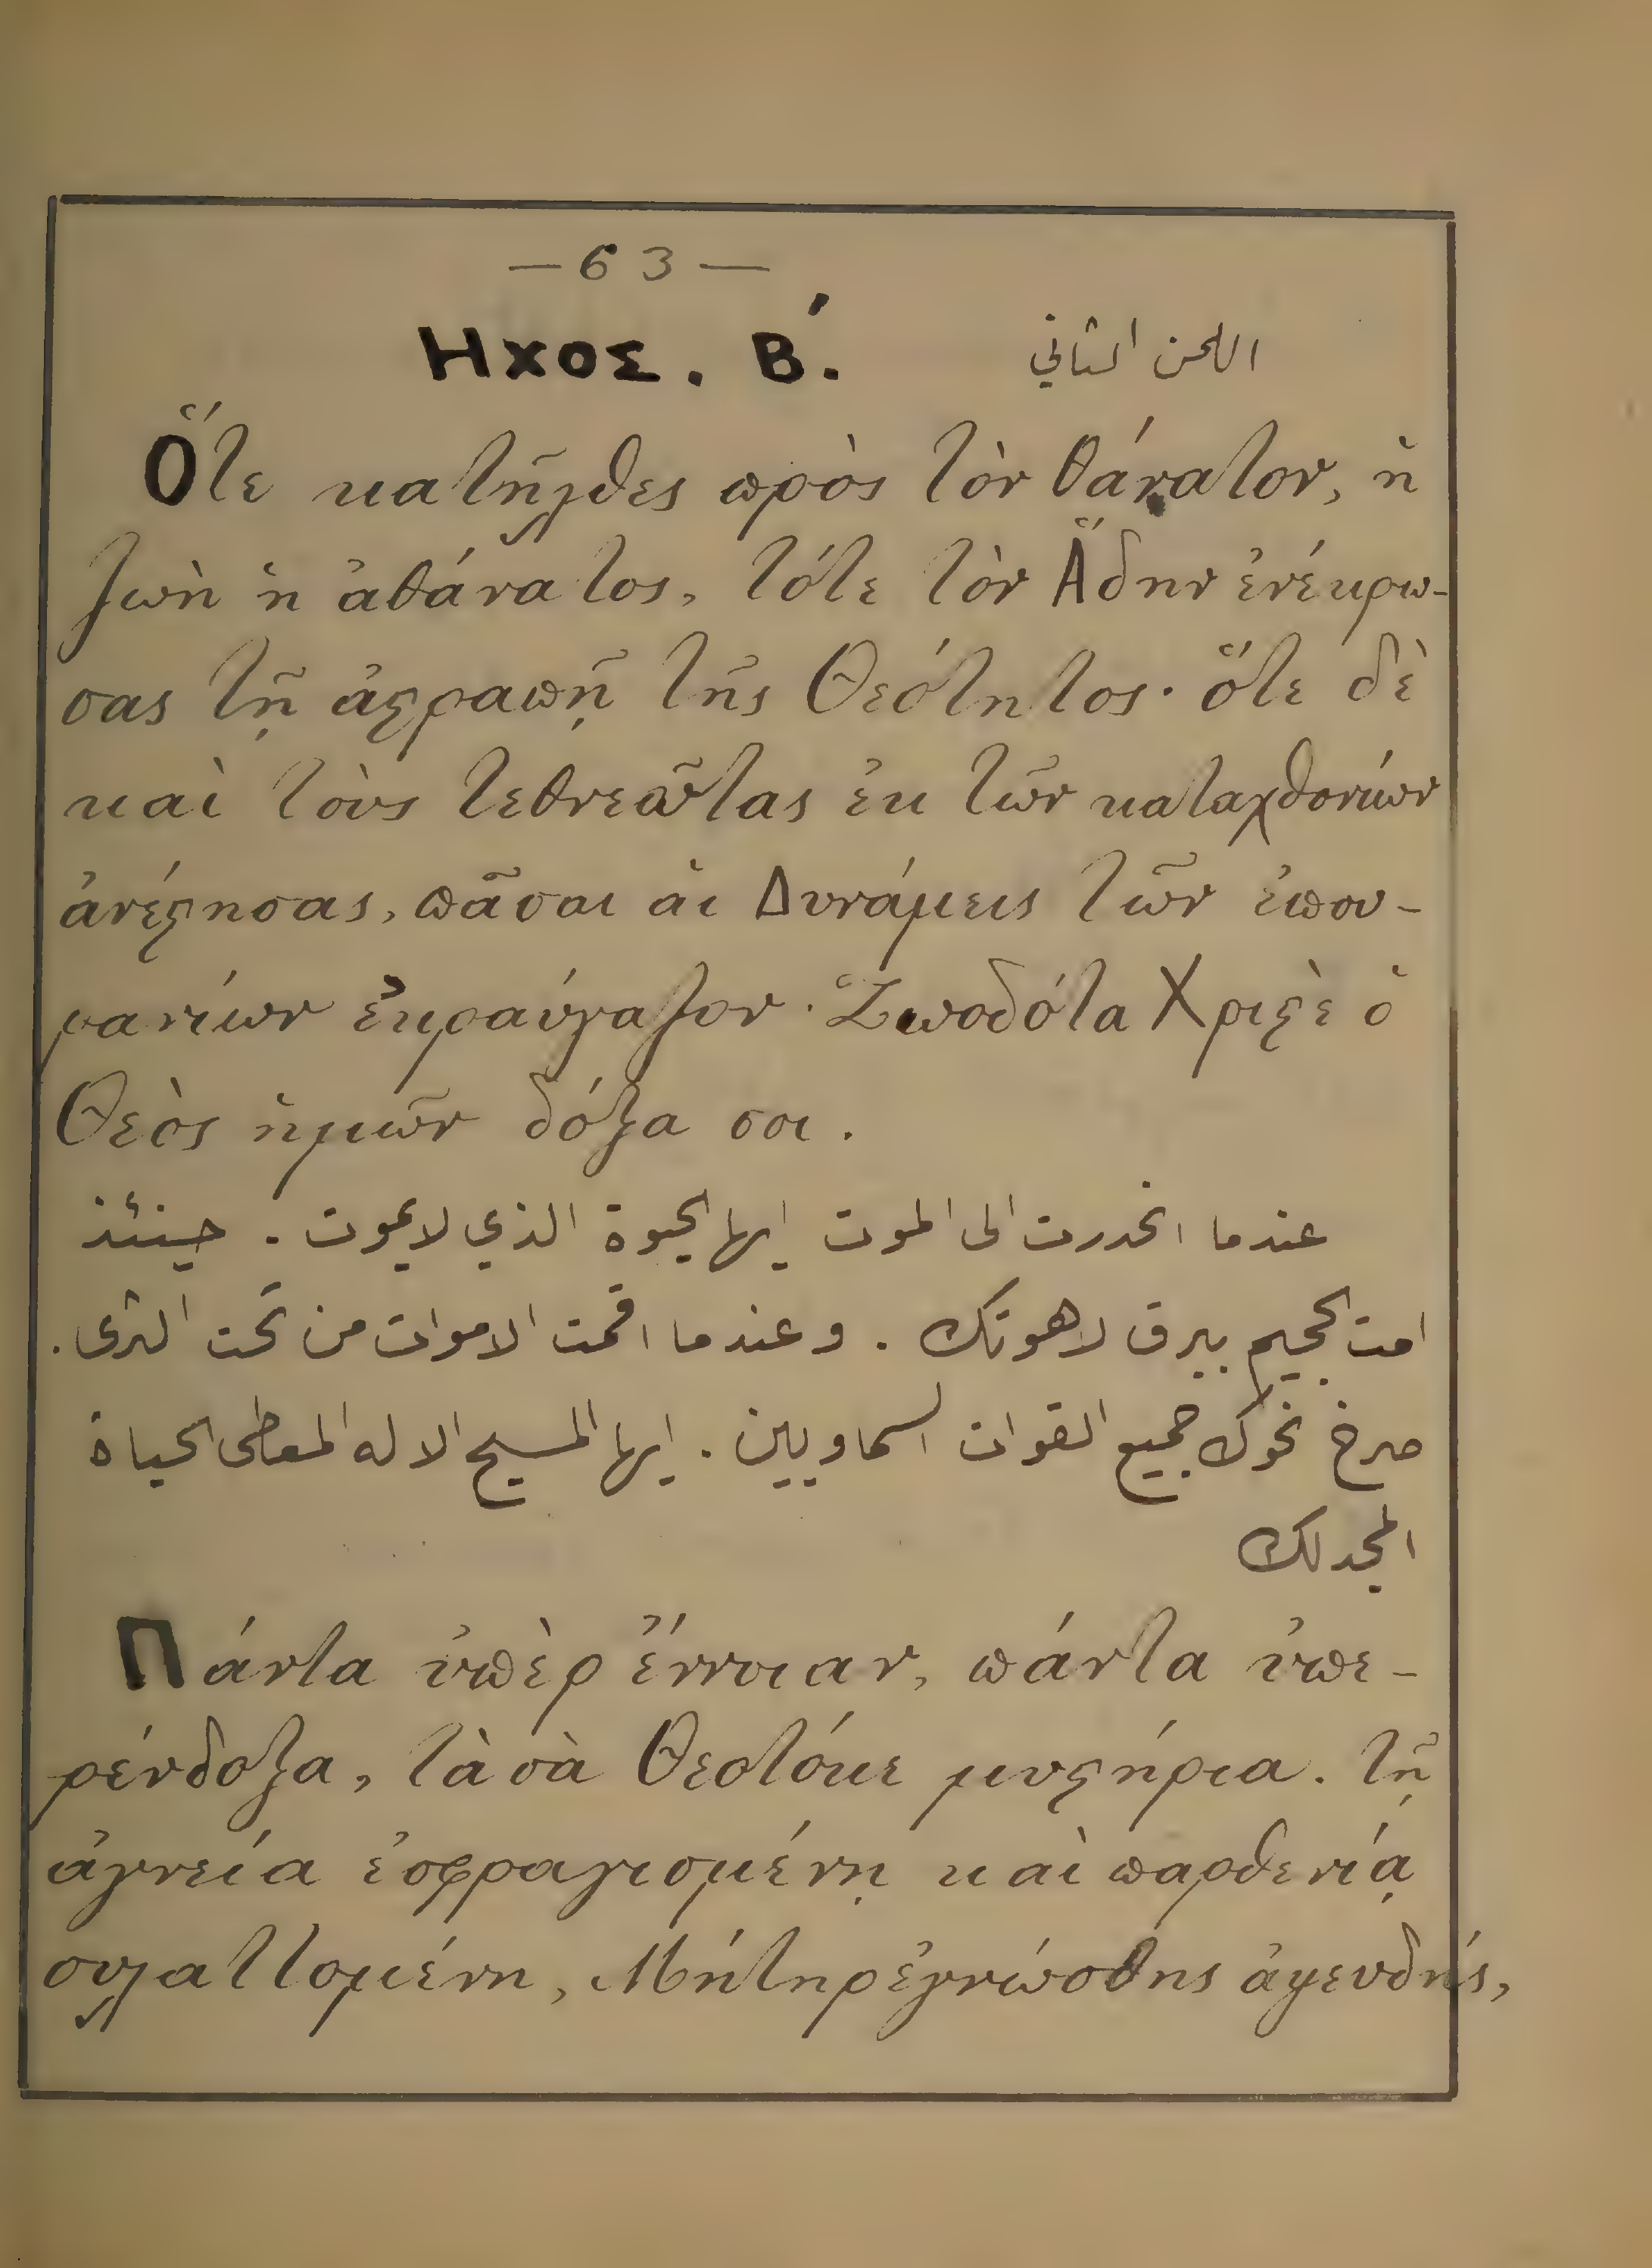 — 63 —
Ηχος. Β΄. اللحن الثاني
Ὅτε κατῆλθες πρὸς τὸν θάνατον, ἡ
ζωὴ ἡ ἀθάνατος, τότε τὸν ᾍδην ἐνέκρω-
σας τῇ ἀϛραπῇ τῆς Θεότητος· ὅτε δὲ
καὶ τοὺς τεθνεῶτας ἐκ τῶν καταχθονίων
ἀνέϛησας, πᾶσαι αἱ Δυνάμεις τῶν ἐπου-
ρανίων ἐκραύγαζον· Ζωοδότα Χριϛὲ ὁ
Θεὸς ἡμῶν δόξα σοι.
عندما انحدرت الى الموت ايها الحيوة الذي لا يموت . حينئذ
امت الجحيم ببرق لاهوتك . وعندما اقمت الاموات من تحت الثرى .
صرخ نحوك جميع القوات السماويين . ايها المسيح الاله المعطى الحياة
المجد لك
Πάντα ὑπὲρ ἔννοιαν, πάντα ὑπε-
ρένδοξα, τὰ σὰ Θεοτόκε μυϛήρια. τῇ
ἁγνεία ἐσφραγισμένη καὶ παρθενίᾳ
φυλαττομένη, Μήτηρ ἐγνώσθης ἀψευδής,